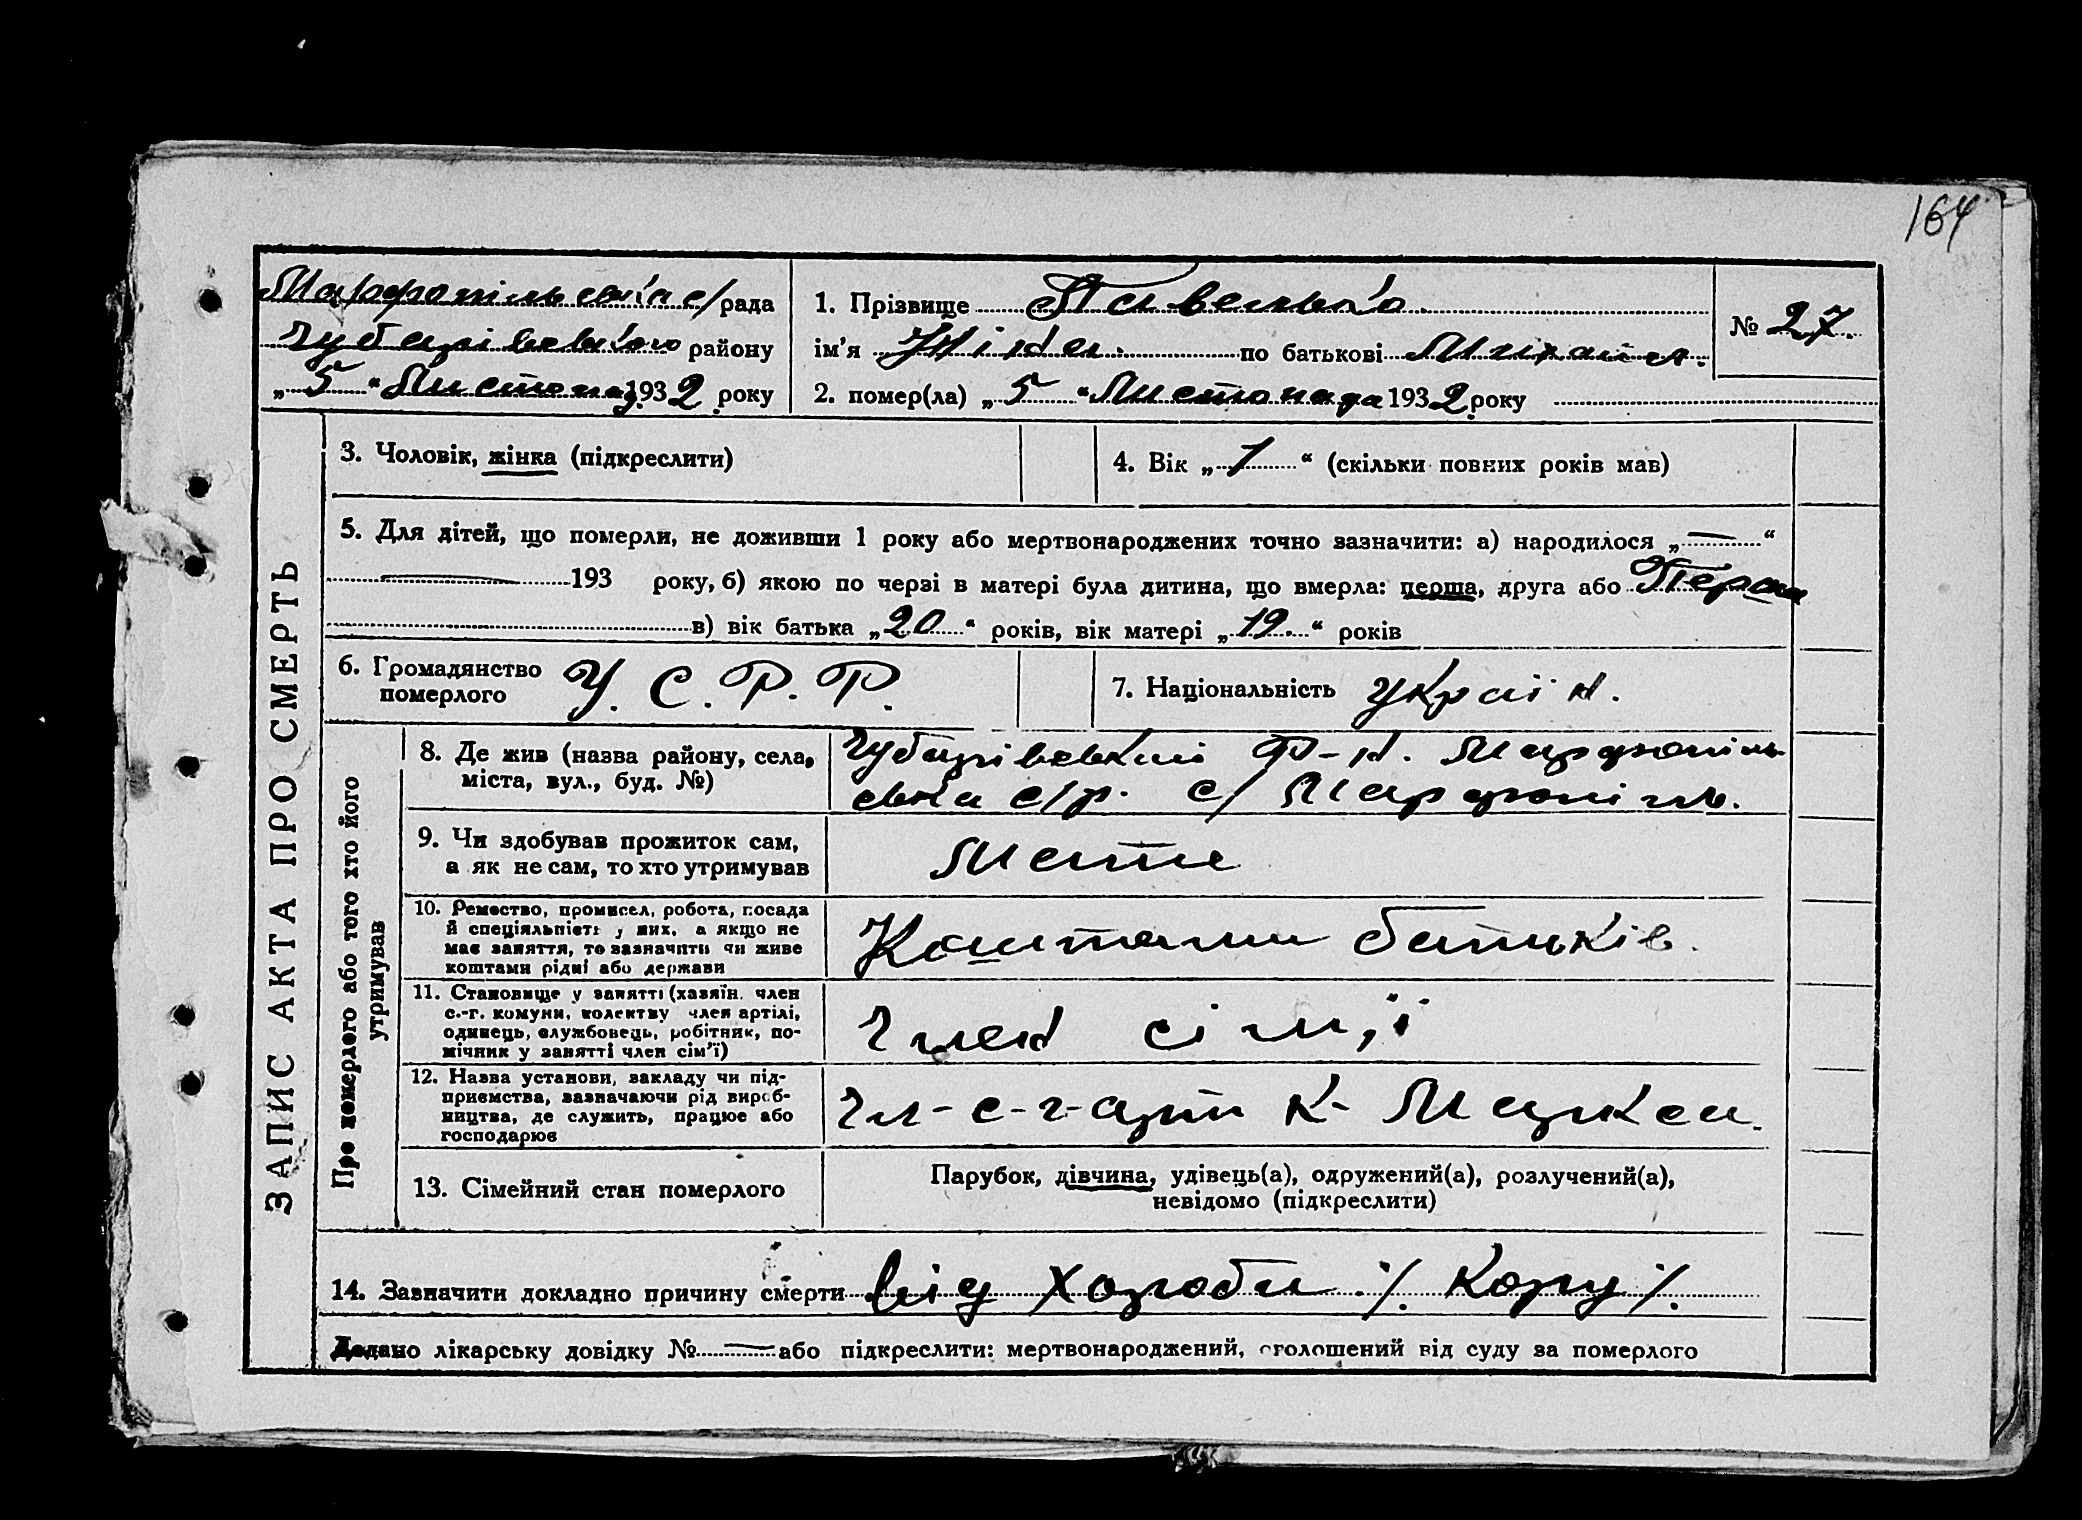 164
Марфопільська с/рада
Чубарівського району
„ 5 “ Листопад. 1932 року
1. Прізвище Павленко
ім’я Ніна. по батькові Михайл.
2. помер(ла) „ 5 “ Листопада 1932 року
№ 27.
ЗАПИС АКТА ПРО СМЕРТЬ
3. Чоловік, жінка (підкреслити)
4. Вік „ 1 “ (скільки повних років мав)
5. Для дітей, що померли, не доживши 1 року або мертвонароджених точно зазначити: а) народилося „ — “
— 193 року, б) якою по черзі в матері була дитина, що вмерла: перша, друга або Перша
в) вік батька „ 20 “ років, вік матері „ 19. “ років
6. Громадянство
померлого
У. С. Р. Р.
7. Національність Україн.
Про померлого або того хто його
утримував
8. Де жив (назва району, села,
міста, вул., буд. №)
Чубарівський Р-н. Марфопіль
ська с/р. с/ Марфопіль.
9. Чи здобував прожиток сам,
а як не сам, то хто утримував
Мати
10. Ремество, промисел, робота, посада
й спеціяльність у них, а якщо не
має заняття, то зазначити чи живе
коштами рідні або держави
Коштами батьків.
11. Становище у занятті (хазяїн, член
с.-г. комуни, колективу член артілі,
одинець, службовець, робітник, по-
мічник у занятті член сім’ї)
Член сім,ї
12. Назва установи, закладу чи під-
приємства, зазначаючи рід вироб-
ництва, де служить, працює або
господарює
Чл-с-г-арт К- Маркса.
13. Сімейний стан померлого
Парубок, дівчина, удівець(а), одружений(а), розлучений(а),
невідомо (підкреслити)
14. Зазначити докладно причину смерти від хороби ·/. Кору ·/.
Додано лікарську довідку № — або підкреслити: мертвонароджений, оголошений від суду за померлого